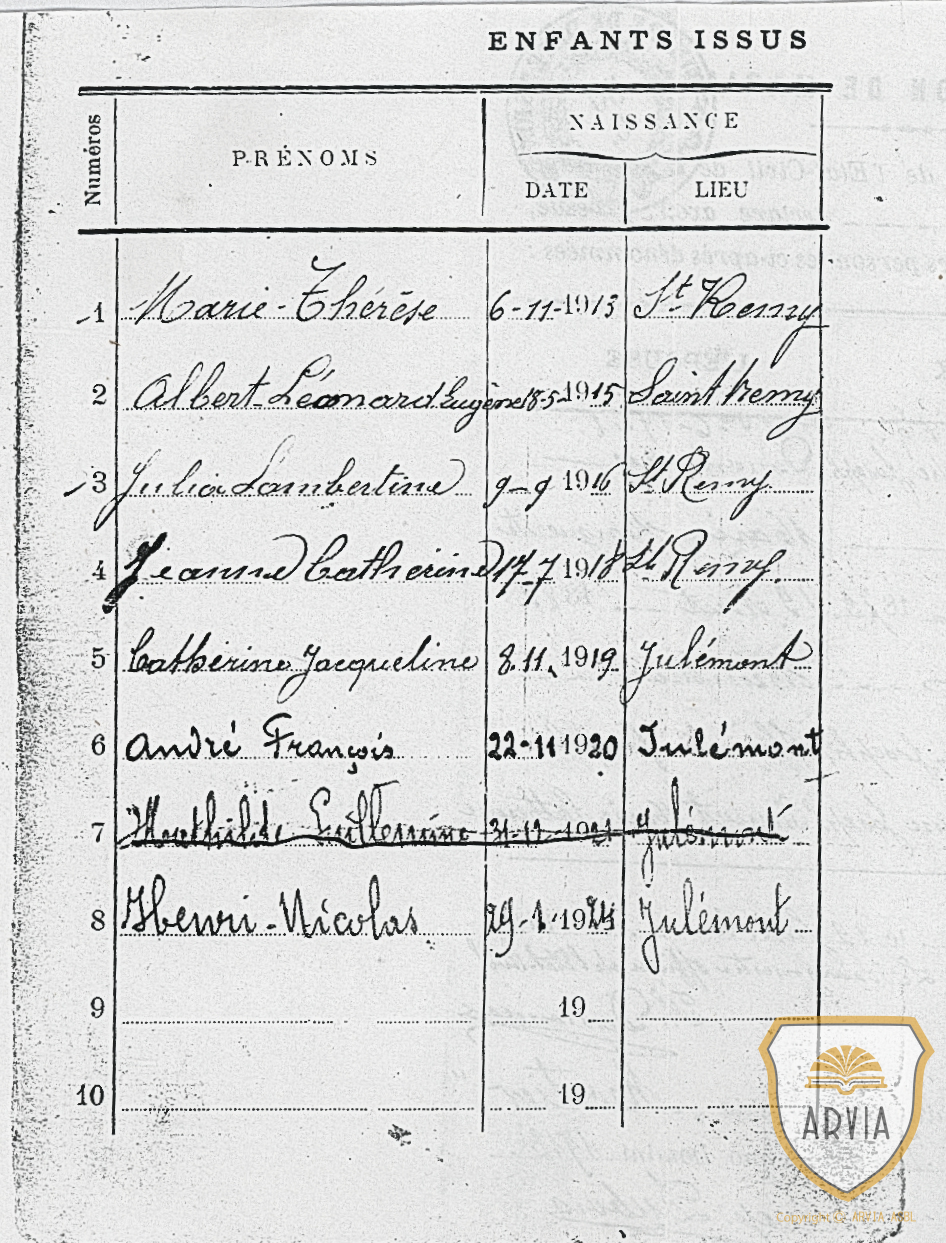 ENFANTS ISSUS
Numéros
PRÉNOMS
NAISSANCE
DATE
LIEU
1 Marie-Thérèse 6-11-1913 St Remy
2 Albert Léonard Eugène 18-5-1915 Saint Remy
3 Julia Lambertine 9-9 1916 St Remy
4 Jeanne Catherine 17-7 1918 St Remy
5 Catherine Jacqueline 8.11. 1919 Julémont
6 André François 22-11 1920 Julémont
7 Julémont
8 Henri-Nicolas 29-1-1924 Julémont
9 19
10 19
ARVIA